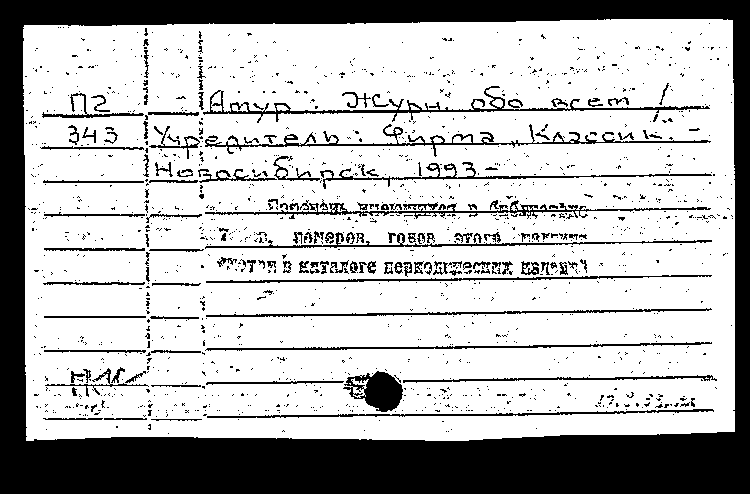 П2 Амур: Журн. обо всем /
343 Учредитель: Фирма „Классик". -
Новосибирск, 1993 -
Перечень имеющихся в библиотеке
номеров, годов этого
в каталоге периодических изданий